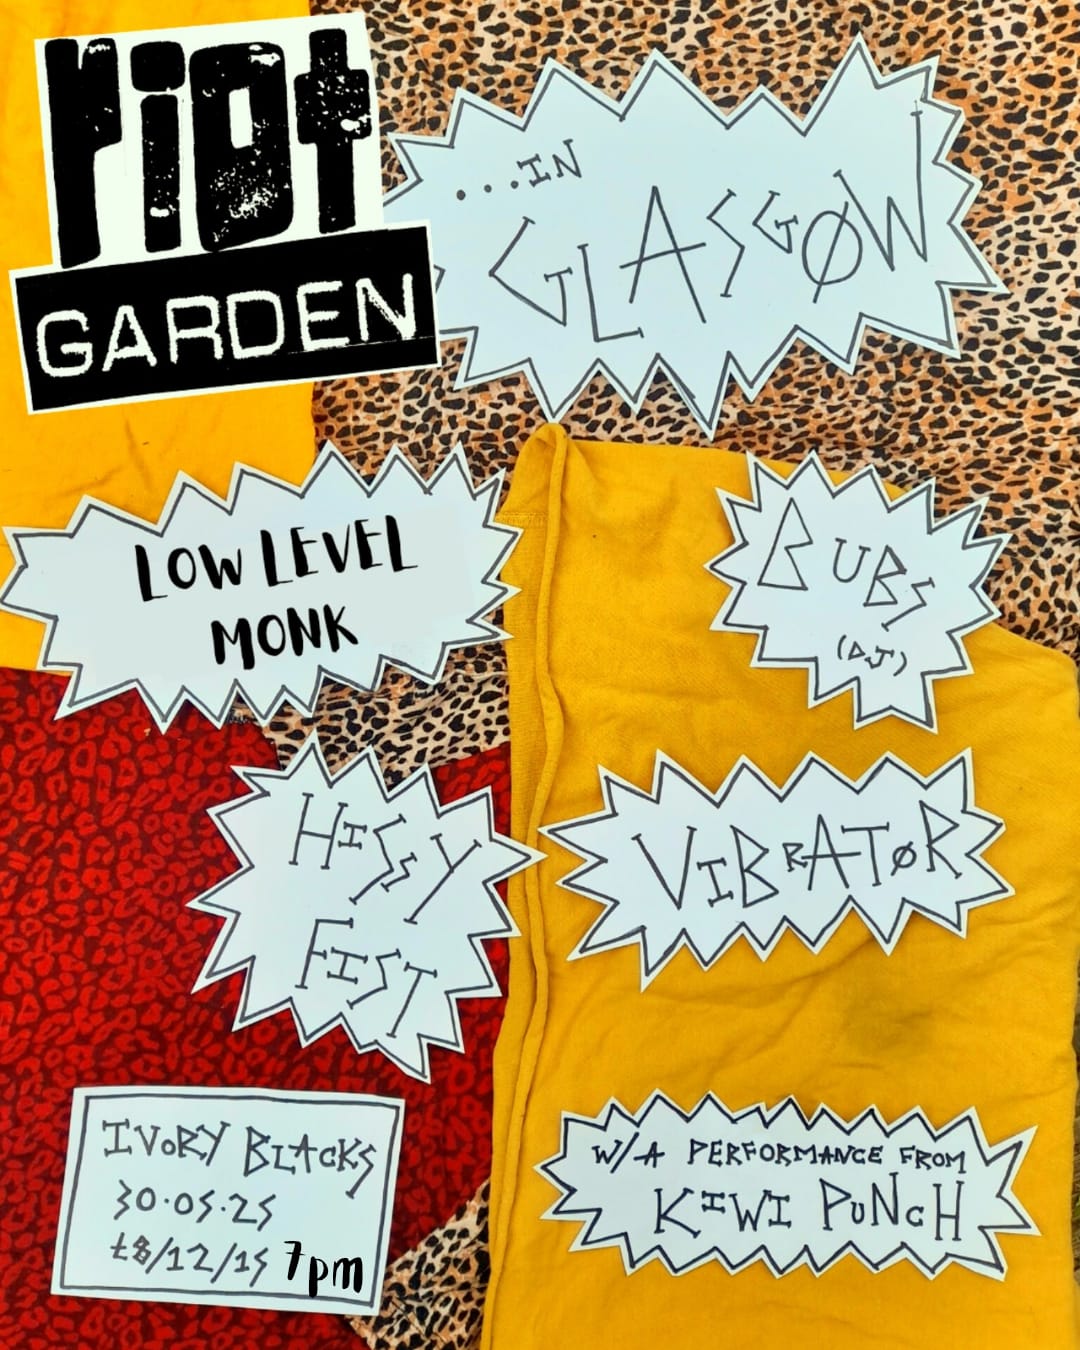 riot
GARDEN
...IN
GLASGØW
LOW LEVEL
MONK
BUBS
(DJ)
HiSSY
FIST
ViBRATØR
IVORY BLACKS
30.05.25
£8/12/15 7pm
W/A PERFORMANCE FROM
KIWI PUNCH